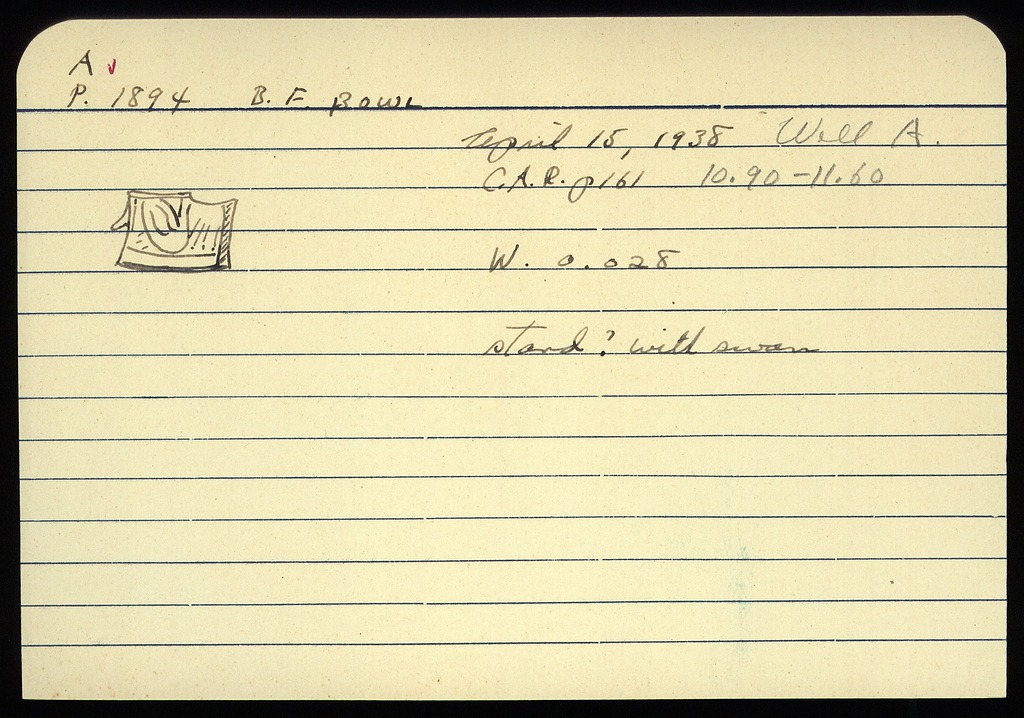 A ✓
P. 1894 B. F. BOWL
April 15, 1938 Well A.
C.A.R. p161 10.90-11.60
W. 0.028
stand? with swan